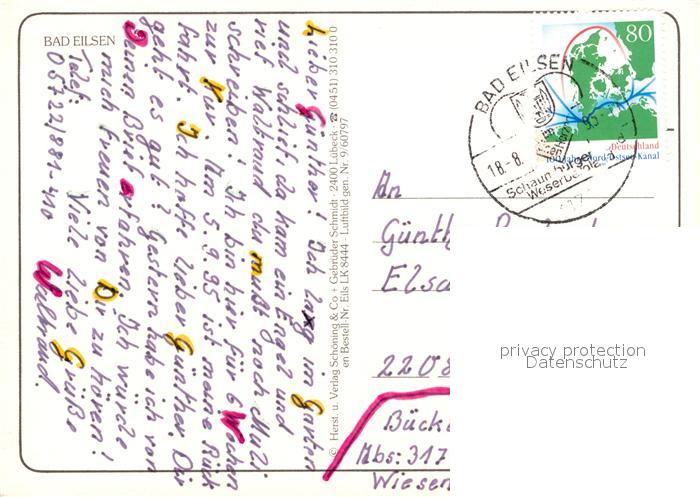 BAD EILSEN
Lieber Günther! Ich lag im Garten
und schlief da kam ein Engel und
rief Walbraud du mußt noch Multi
schreiben! Ich bin hier für 6 Wochen
zur Kur. Am 5.9.95 ist meine Rück
fahrt. Ich hoffe lieber Günther. Dir
geht es gut? Gestern habe ich von
Deinen Brief erfahren. Ich würde
mich freuen von Dir zu hören!
Telef: Viele Liebe Grüße
05722/881-410 Walbraud.
© Herst. u. Verlag Schöning & Co + Gebrüder Schmidt · 2400 Lübeck ☎ (0451) 310 310 0
en Bestell-Nr. Eils LK 8444 · Luftbild gen. Nr. 9/60797
80
Deutschland
100 Jahre Nord-Ostsee-Kanal
BAD EILSEN
18.-8.
Schaumburger
Weserbergland
An
Günth
Elsa
2208
Bücke
Abs: 317
Wiesen
privacy protection
Datenschutz